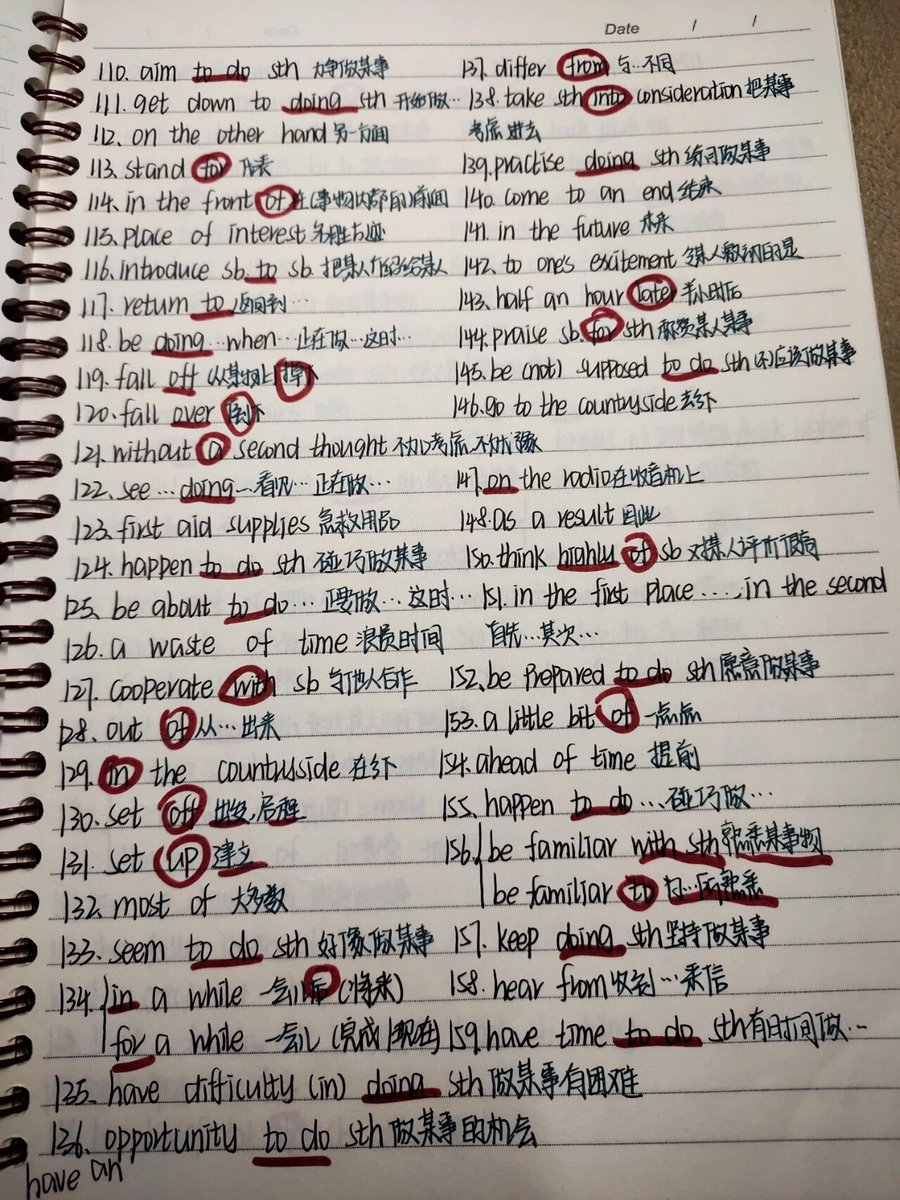 Date / /
110. aim to do sth 力争做某事
111. get down to doing sth 开始做…
112. on the other hand 另一方面
113. stand for 代表
114. in the front of 在(事物内部的)前面
115. place of interest 名胜古迹
116. introduce sb. to sb. 把某人介绍给某人
117. return to 返回到…
118. be doing…when…正在做…这时…
119. fall off 从某物上掉下
120. fall over 倒下
121. without a second thought 不加考虑、不加犹豫
122. see…doing…看见…正在做…
123. first aid supplies 急救用品
124. happen to do sth 碰巧做某事
125. be about to do…正要做…这时…
126. a waste of time 浪费时间
127. cooperate with sb 与他人合作
128. out of 从…出来
129. in the countryside 在乡下
130. set off 出发,启程
131. set up 建立
132. most of 大多数
133. seem to do sth 好像做某事
134. in a while 一会儿后(将来)
for a while 一会儿(完成/现在)
135. have difficulty (in) doing sth 做某事有困难
136. opportunity to do sth 做某事的机会
have an
137. differ from 与…不同
138. take sth into consideration 把某事
考虑进去
139. practise doing sth 练习做某事
140. come to an end 结束
141. in the future 未来
142. to one's excitement 令某人激动的是
143. half an hour later 半小时后
144. praise sb. for sth 称赞某人某事
145. be (not) supposed to do sth (不)应该做某事
146. go to the countryside 去乡下
147. on the radio 在收音机上
148. as a result 因此
150. think highly of sb 对某人评价很高
151. in the first place ...., in the second
首先…其次…
152. be prepared to do sth 愿意做某事
153. a little bit of 一点点
154. ahead of time 提前
155. happen to do…碰巧做…
156. be familiar with sth 熟悉某事物
be familiar to 为…所熟悉
157. keep doing sth 坚持做某事
158. hear from 收到…来信
159. have time to do sth 有时间做…